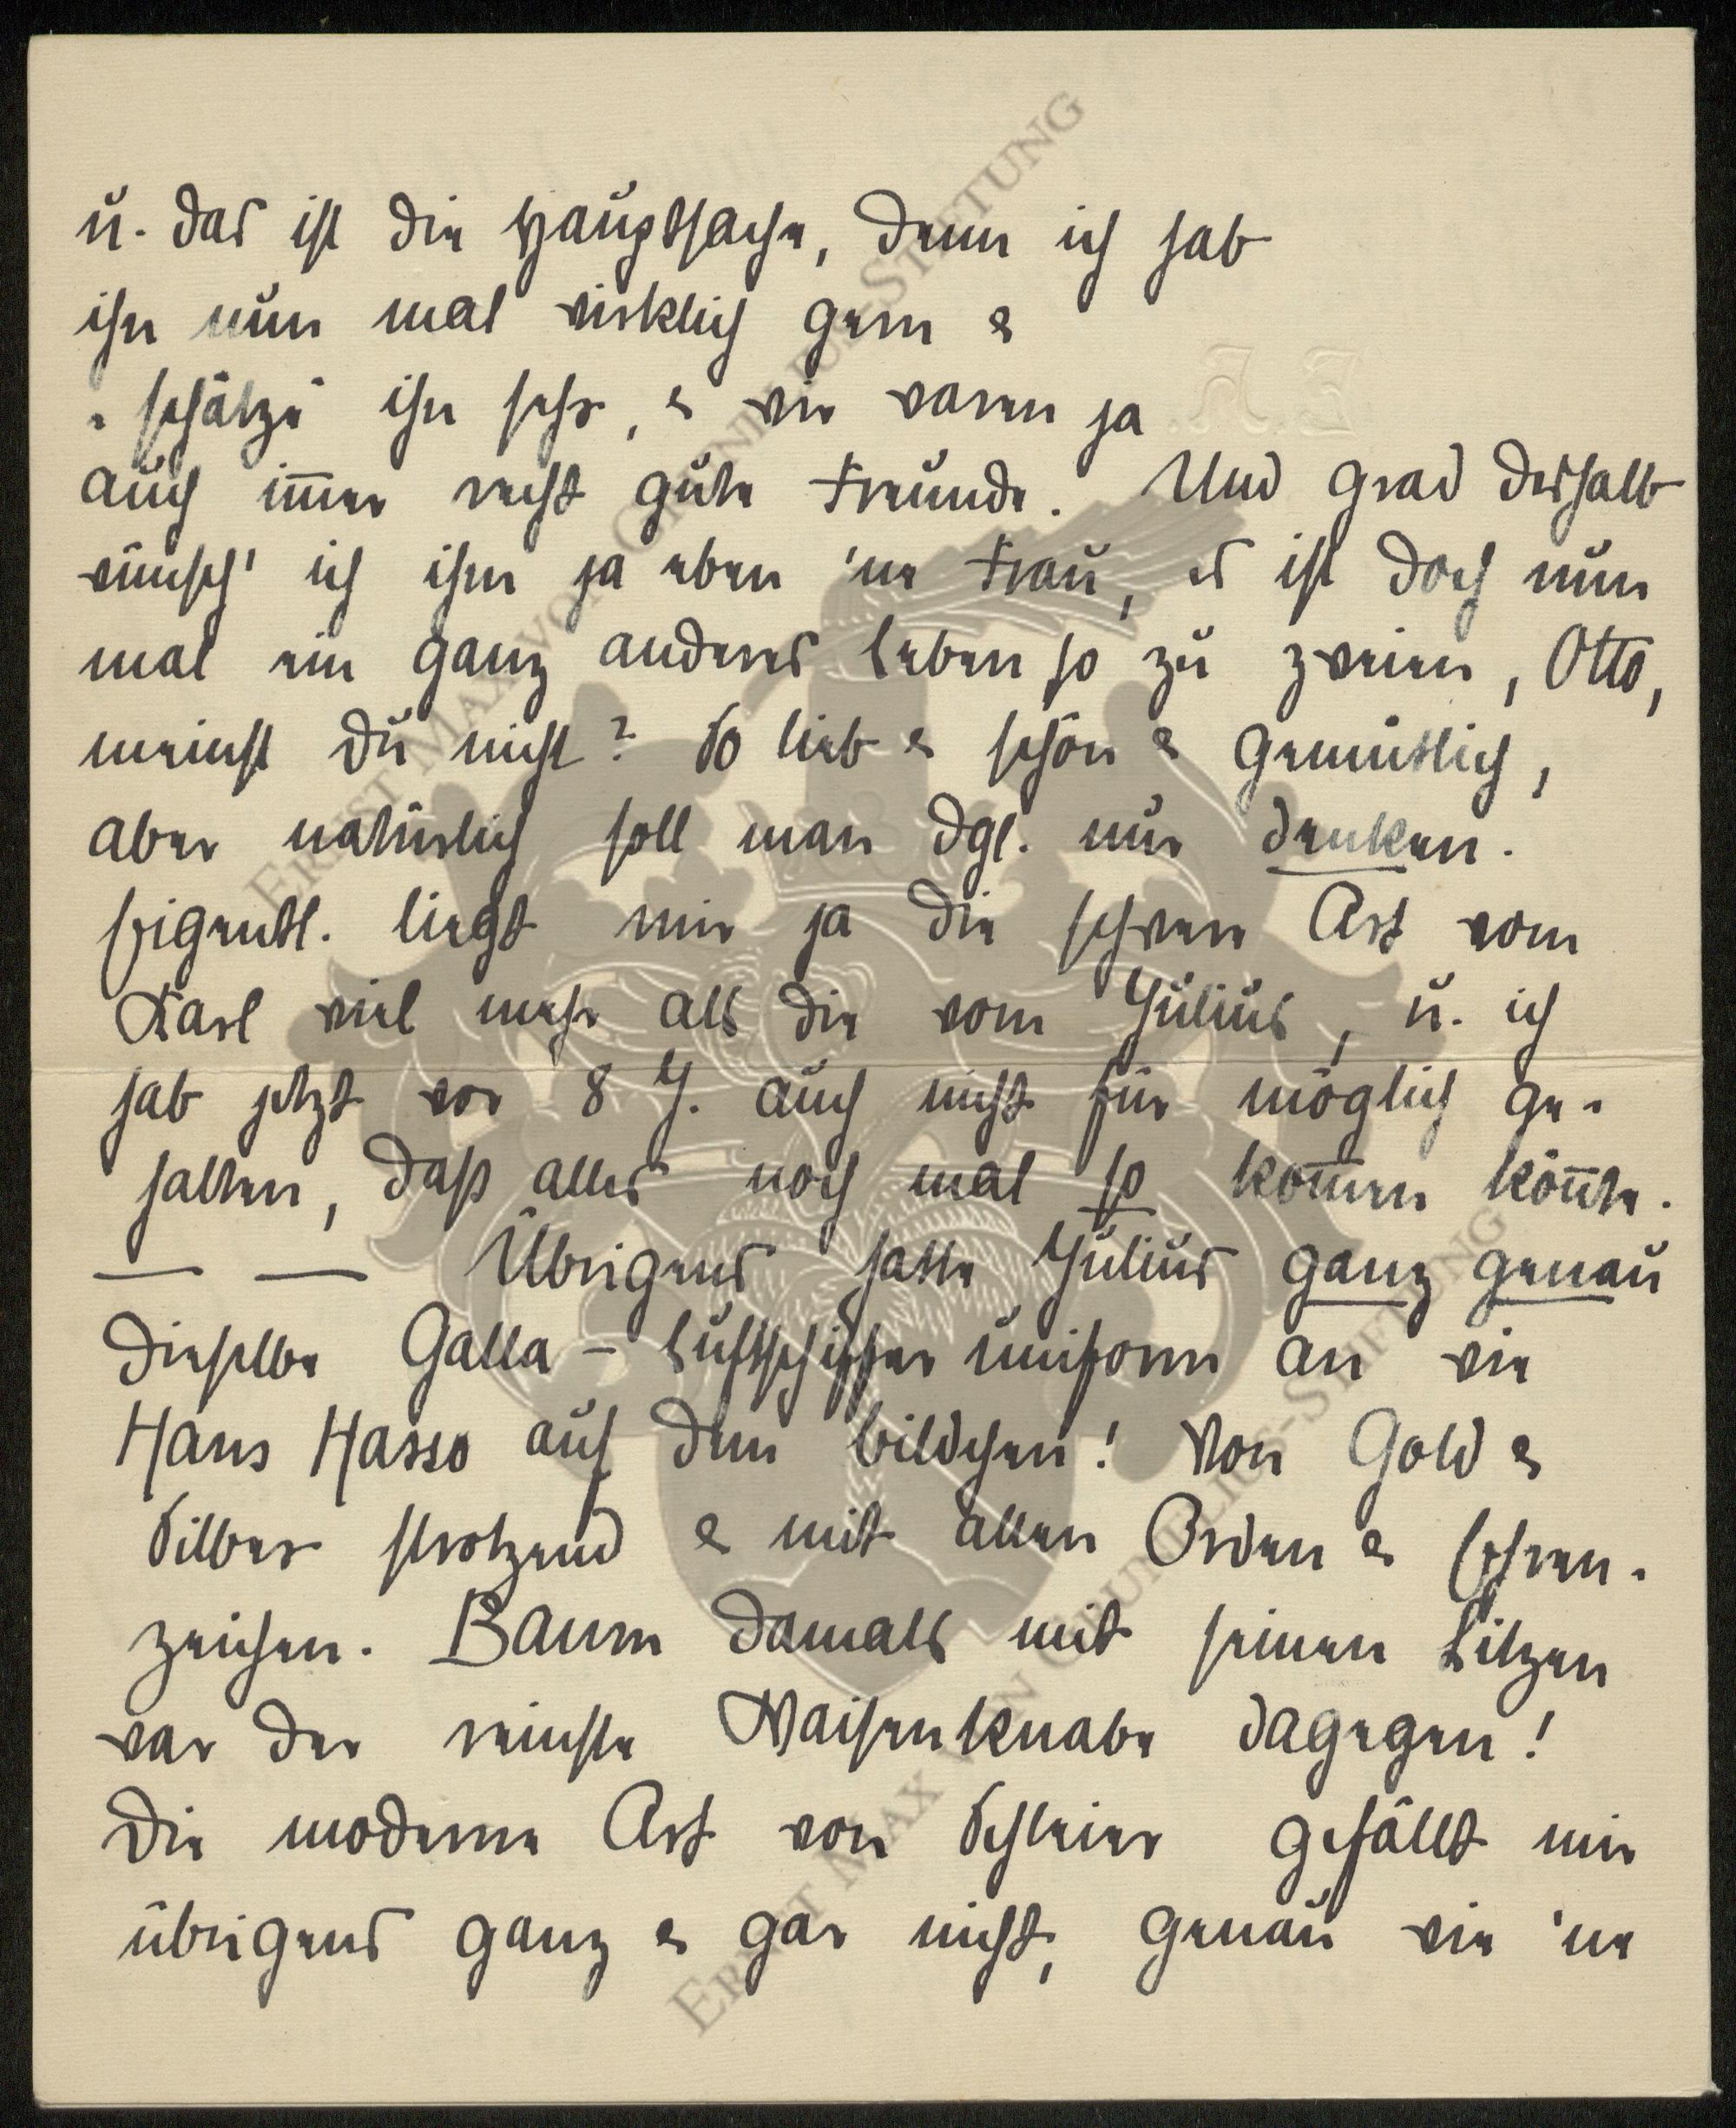 u. das ist die Hauptsache, denn ich hab
ihn nun mal wirklich gern &
„schätze“ ihn sehr, & wir waren ja
auch im̅er recht gute Freunde. Und grad deshalb
wünsch' ich ihm ja eben 'ne Frau, es ist doch nun
mal ein ganz anderes Leben so zu zweien, Otto,
meinst Du nicht? So lieb & schön & gemütlich,
aber natürlich soll man dgl. nur denken.
Eigentl. liegt mir ja die schwere Art vom
Karl viel mehr als die vom Julius, u. ich
hab jetzt vor 8 J. auch nicht für möglich ge-
halten, daß alles noch mal so kom̅en kön̅te.
— — Übrigens hatte Julius ganz genau
dieselbe Galla-Luftschifferuniform an wie
Hans Hasso auf dem Bildchen! Von Gold &
Silber strotzend & mit allen Orden & Ehren-
zeichen. Baum damals mit seinen Litzen
war der reinste Waisenknabe dagegen!
Die moderne Art von Schleier gefällt mir
übrigens ganz & gar nicht, genau wie 'ne
E.R.
ERNST MAX VON GRUNELIUS-STIFTUNG
ERNST MAX VON GRUNELIUS-STIFTUNG